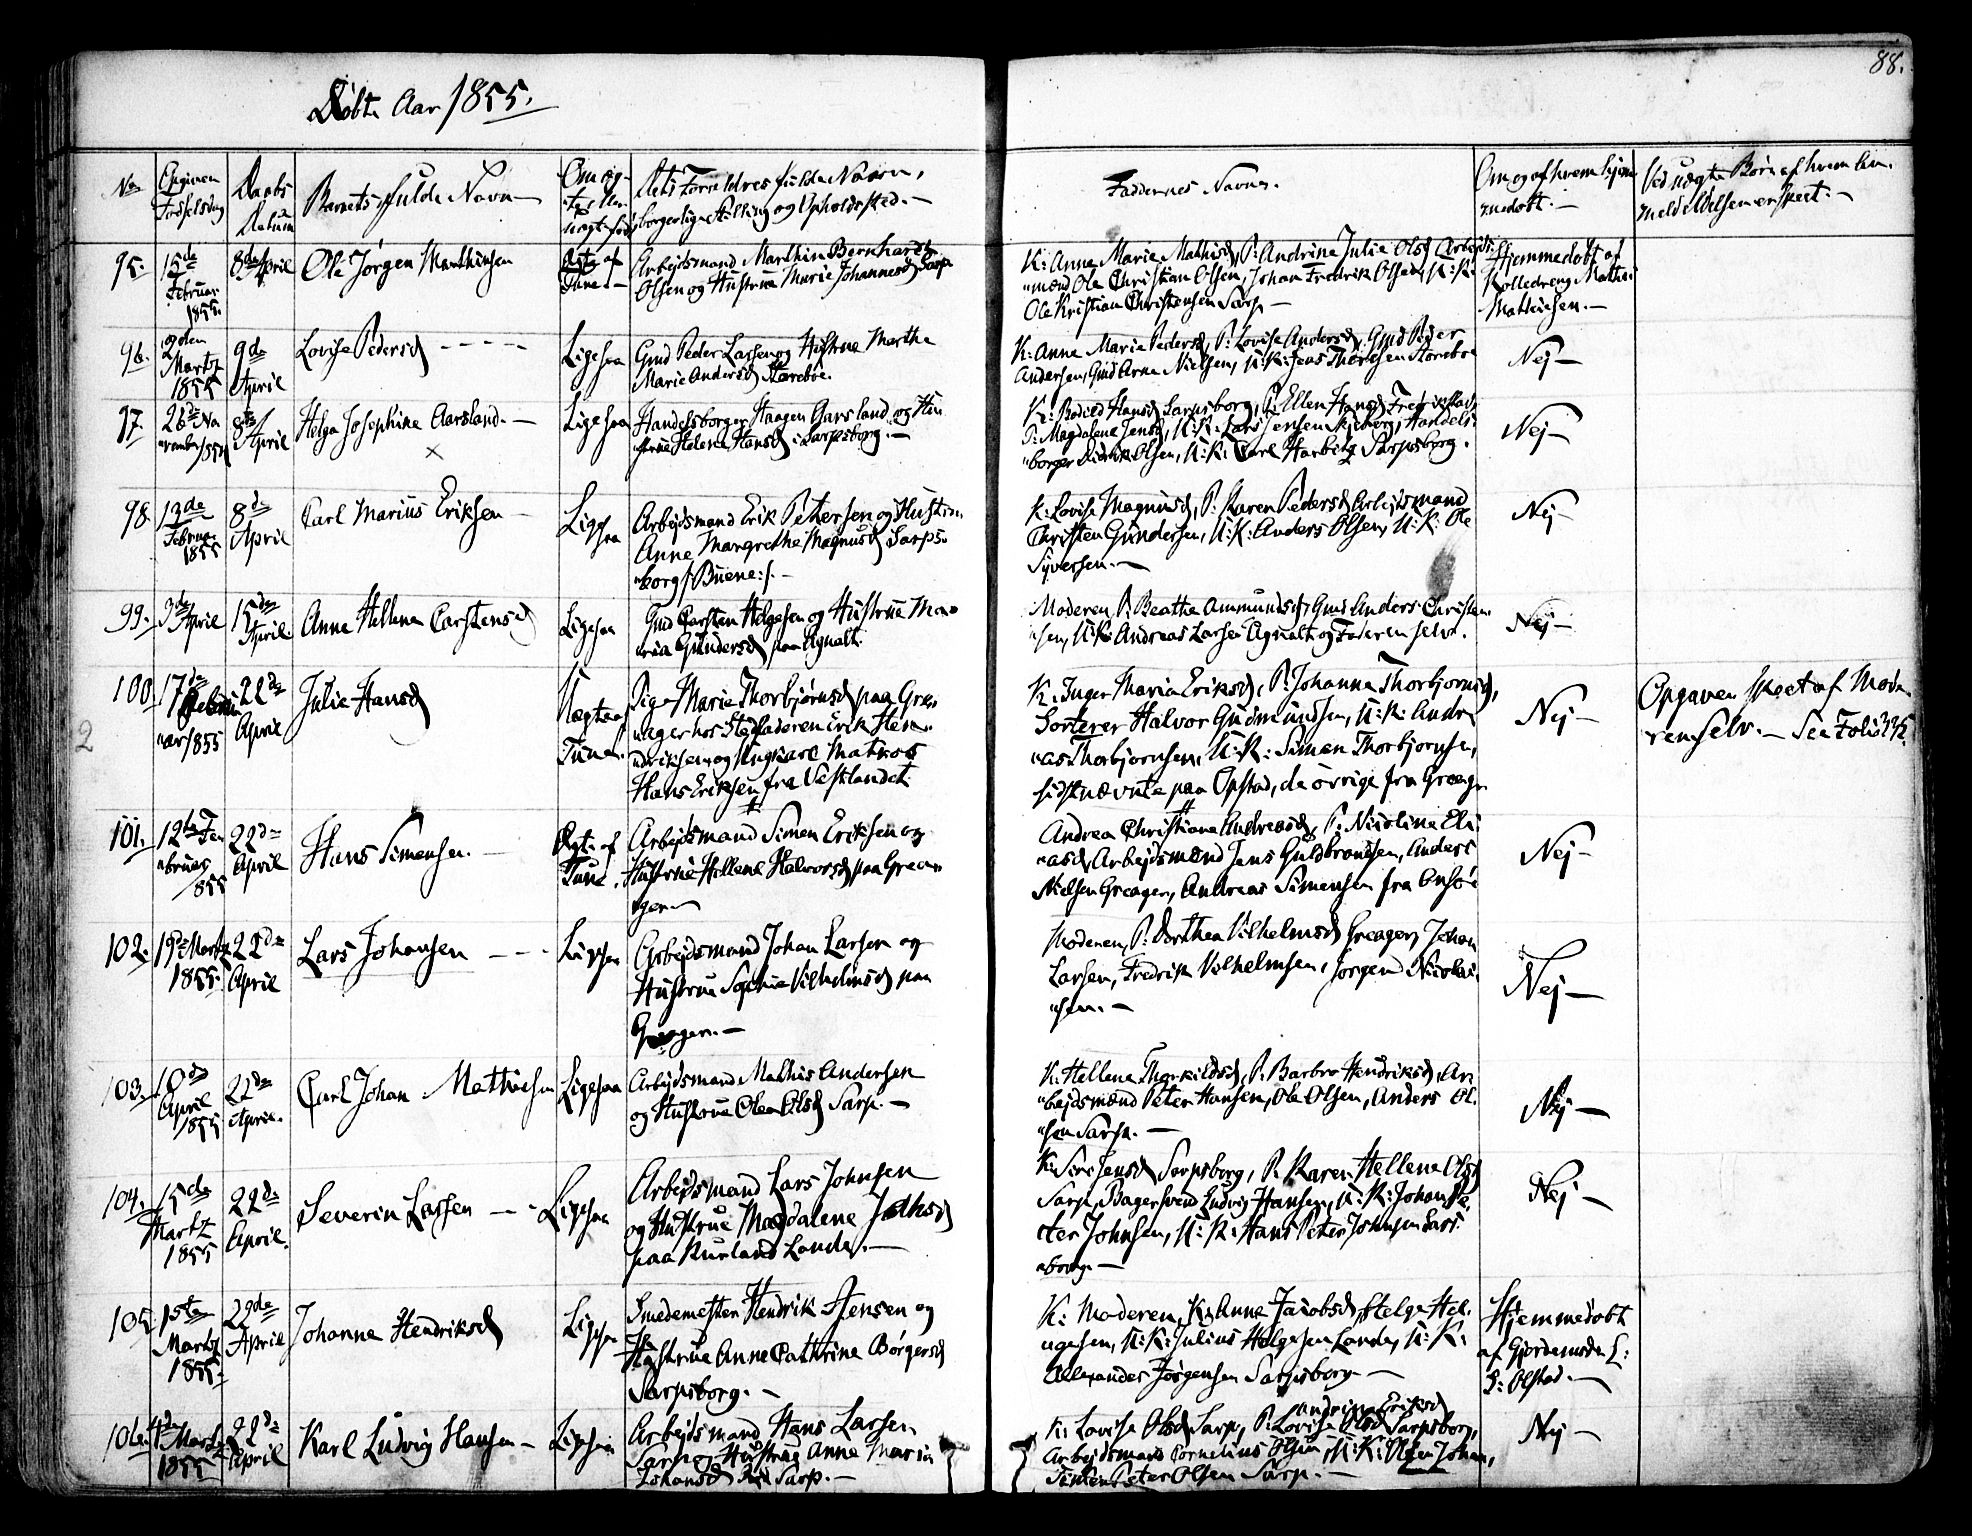 88.
Døbte Aar 1855.
No
Angiven
Fødselsdag
Daabs
Datum
Barnets fulde Navn
Om ægte
eller
uægte født
Dets Forældres fulde Navn,
borgerlige Stilling og Opholdssted.—
Faddernes Navne.
Om og af hvem hjem-
medøbt.—
Ved uægte Børn af hvem An-
meldelsen er skeet.—
95.
15de
Februar
1855.
8de April
Ole Jørgen Marthinsen
Ægte af
Tune.—
Arbejdsmand Marthin Bernhardt
Olsen og Hustrue Marie Johannesd Sarp
K: Anne Marie Mathisd, P: Andrine Julie Olsd Arbejds-
mænd Ole Christian Olsen, Johan Fredrik Olsen, U: K:
Ole Kristian Christensen Sarp—
Hjemmedøbt af
Rolledreng Mathis
Mathiesen.—
96.
Martz
1855
9de
April
Lovise Pedersd - - - -
Ligesaa
Gmd Peder Larsen og Hustrue Marthe
Marie Andersd Storeboe.
K: Anne Marie Pedersd, P: Lovise Andersd, Gmd Peder
Andersen, Gmd Arne Nielsen, U: K: Jens Thoresen Storeboe
Nej—
97.
26de No-
vember 1854
8de
April
Helga Josephine Aarsland.—
×
Ligesaa
Handelsborger Haagen Aarsland og Hu-
strue Helene Hansd i Sarpsborg.—
K: Bodild Hansd Sarpsborg, P: Ellen Hansd Fredrikstad
P: Magdalene Jensd, U: K: Lars Jensen Skjeberg, Handels-
borger Didrik Olsen, U: K: Carl Harbitz Sarpsborg.
Nej—
98.
13de
Februar
1855
8de
April
Carl Marius Eriksen—
Ligesaa
Arbejdsmand Erik Petersen og Hustrue
Anne Margrethe Magnusd Sarps-
borg /: Buene :/.—
K: Lovise Magnusd, P: Karen Pedersd Arbejdsmand
Christen Gundersen, U: K: Anders Olsen, U: K: Ole
Syversen.—
Nej—
99.
3de
April
15de
April
Anne Hellene Carstensd
Ligesaa
Gmd Carsten Helgesen og Hustrue Ma-
ria Gundersd paa Agnalt.
Moderen, P: Beathe Ammundsd, Gmd Anders Christen-
sen, U: K: Andreas Larsen Agnalt og Faderen selv.
Nej—
100
17de
Febru-
ar 1855
22de
April
Julie Hansd
Uægte af
Tune.
Pige Marie Thorbjørnsd paa Grea-
ager hos Stedfaderen Erik Hen-
driksen og Ungkarl Matros
Hans Eriksen fra Vestlandet
K: Inger Maria Eriksd, P: Johanna Thorbjørnsd,
Sorterer Halvor Gudmundsen, U: K: Andre-
as Thorbjørnsen, U: K: Simen Thorbjørnsen,
sidstnævnte paa Opstad, de øvrige fra Greager
Nej—
Opgaven skeet af Mode-
ren selv.— See Folio 335.
2
101.
12te Fe-
bruar
1855
22de
April
Hans Simensen.—
Ægte af
Tune.
Arbejdsmand Simen Eriksen og
Hustrue Hellene Halvorsd paa Grea-
ger—
Andrea Christiane Andreasd, P: Nicoline Eli-
asd, Arbejdsmænd Jens Guldbrandsen, Anders
Nielsen Greager, Andreas Simensen fra Onsøe
Nej—
102.
19de Martz
1855.
22de
April
Lars Johansen - - -
Ligesaa
Arbejdsmand Johan Larsen og
Hustrue Sophie Vilhelmsd paa
Greager.—
Moderen, P: Dorthea Vilhelmsd Greager, Johan
Larsen, Fredrik Vilhelmsen, Jørgen Nicolai-
sen.—
Nej—
103.
10de
April
1855
22de
April.
Carl Johan Mathiesen
Ligesaa
Arbejdsmand Mathis Andersen
og Hustrue Olea Olsd Sarp.—
K: Hellene Thorkildsd, P: Barbro Hendriksd, Ar-
bejdsmænd Peter Hansen, Ole Olsen, Anders Ol-
sen Sarp.—
Nej—
104.
15de
Martz
1855
22de
April.
Severin Larsen - -
Ligesaa
Arbejdsmand Lars Johnsen
og Hustrue Magdalene
paa Kurland Lande.—
K: Jensd Sarpsborg, P: Karen Hellene Olsd
Sarp, Bagersvend Ludvig Hansen, U: K: Johan Pe-
ter Johnsen, U: K: Hans Peter Johnsen Sarps-
borg.—
Nej—
105.
1ste
Martz
1855.
22de
April
Johanne Hendriksd
Ligesaa
Smedemester Hendrik Jensen og
Hustrue Anne Cathrine Børgersd
Sarpsborg.—
K: Moderen, K: Anne Jacobsd, Helge Hel-
gesen, U: K: Julius Helgesen Lande, U: K:
Allexander Jørgensen Sarpsborg—
Hjemmedøbt
af Gjordemoder L:
S: Olstad.—
106.
4de
Martz
1855
22de
April
Karl Ludvig Hansen—
Ligesaa
Arbejdsmand Hans Larsen
Sarp og Hustrue Anne Maria
Johansd Sarp.—
Andrine Eriksd
K: Lovise Olsd Sarp, P: Lovise Olsd Sarpsborg,
Arbejdsmand Cornelius Olsen, U: K: Olsen Johan,
Peter Olsen Sarp.—
Nej—